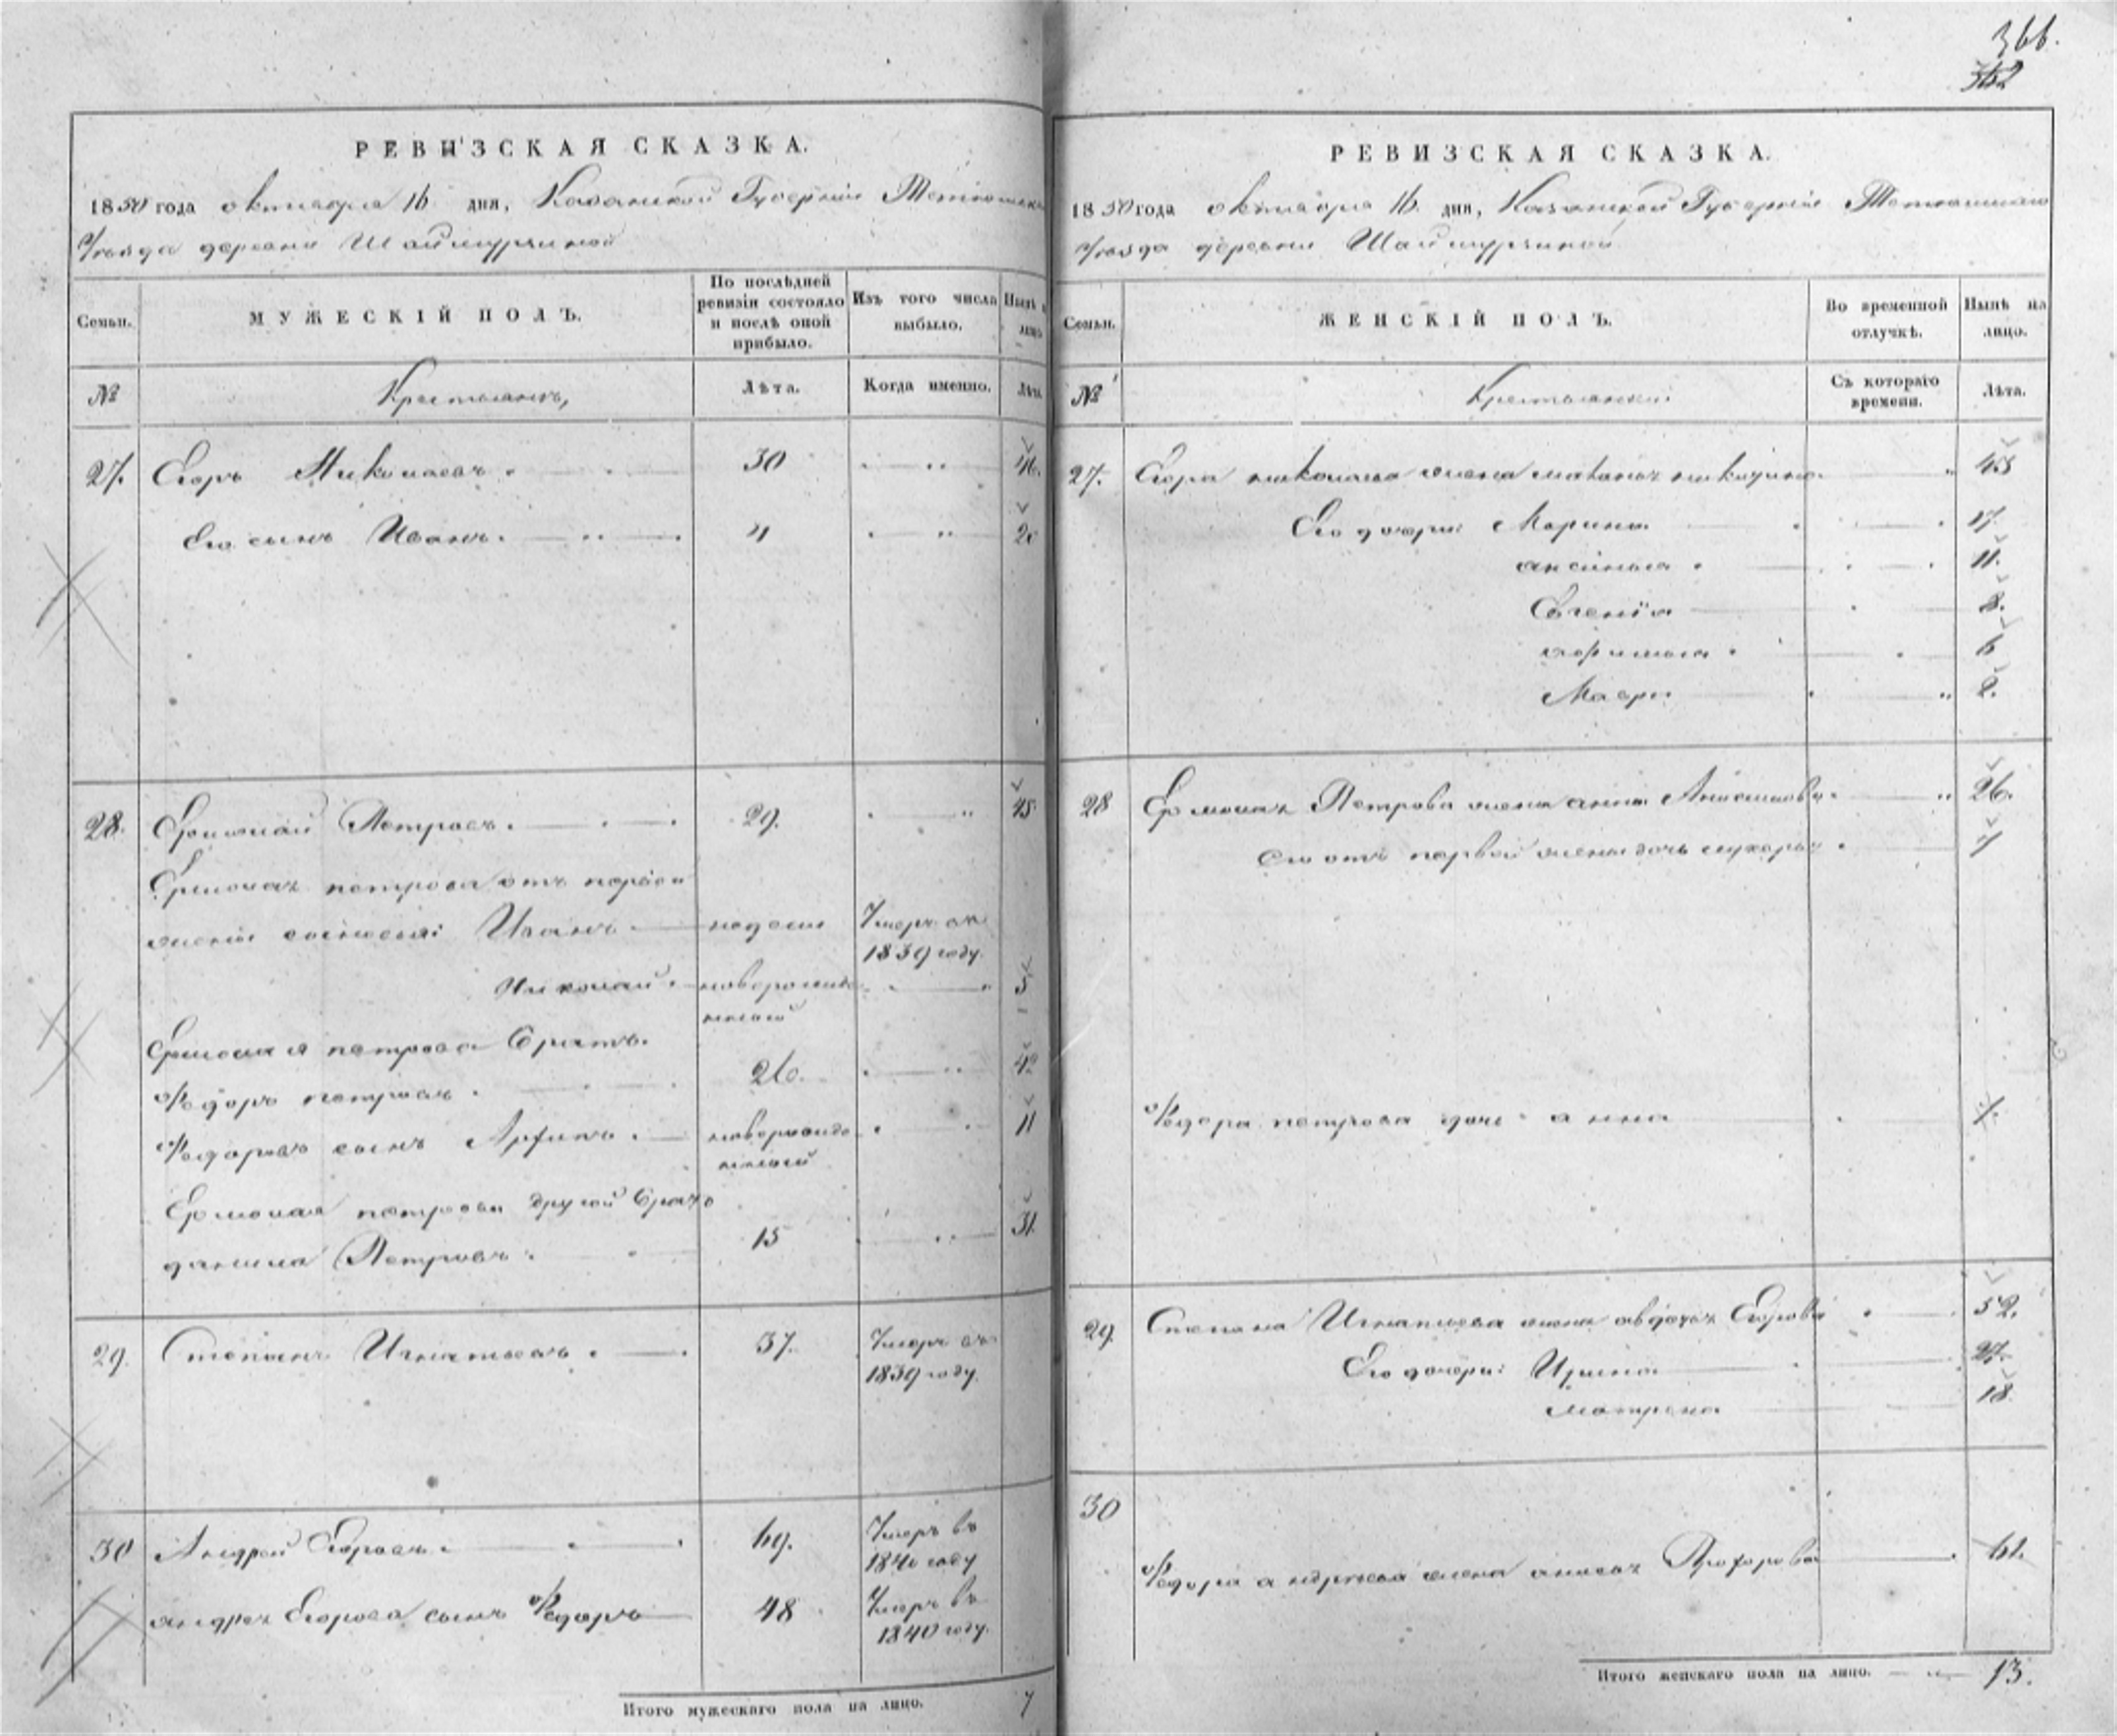 366.
362
РЕВИЗСКАЯ СКАЗКА.
1850 года октября 16 дня, Казанской Губерніи
Уезда деревни Шаймурзиной
Семьи.
МУЖЕСКІЙ ПОЛЪ.
По послѣдней ревизіи состояло и послѣ оной прибыло.
Изъ того числа выбыло.
Нынѣ
№
Крестьянъ,
Лѣта.
Когда именно.
Лѣта
27. Егоръ Николаевъ 30 46.
Его сынъ Иванъ 4 20
28. Ермолай Петровъ 29. 45
Ермолая петрова отъ первой
жены сыновья: Иванъ недели Умеръ въ
1839 году.
Николай новорожде 5
нный
Ермолая петрова братъ
Федоръ петровъ 26. 42
Федоровъ сынъ новорожде 11
нный
Ермолая петрова другой братъ
данила Петровъ 15 31
29. Степанъ Игнатьевъ 37. Умеръ въ
1839 году.
30 Андрей Егоровъ 69. Умеръ въ
1840 году
андрея Егорова сынъ Федоръ 48 Умеръ въ
1840 году.
Итого мужескаго пола на лицо. 7
РЕВИЗСКАЯ СКАЗКА.
1850 года октября 16. дня, Казанской Губерніи Тетюшскаго
Уезда деревни Шаймурзиной
Семьи.
ЖЕНСКІЙ ПОЛЪ.
Во временной отлучкѣ.
Нынѣ на лицо.
№
Крестьянки
Съ котораго времени.
Лѣта.
27. Егора николаева жена никитина 45
Его дочери: Марина 17
аксинья 11.
Евгенія 8.
6
Мавра 2.
28 Ермолая Петрова жена анна 26.
Его отъ первой жены дочь 7
Федора петрова дочь анна 7.
29. Степана Игнатьева жена авдотья Егорова 52.
Его дочери: Ирина 27.
матрена 18.
30
Федора андреева жена анисья Прохорова 61.
Итого женскаго пола на лицо. 13.